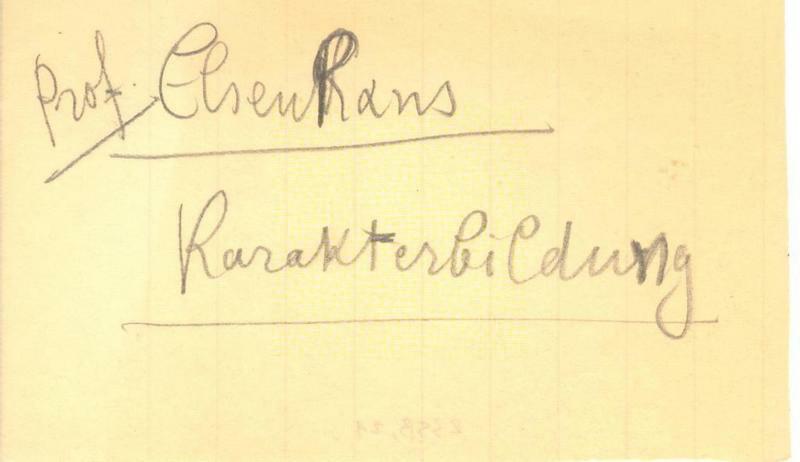 Prof. Elsenhans
Karakterbildung